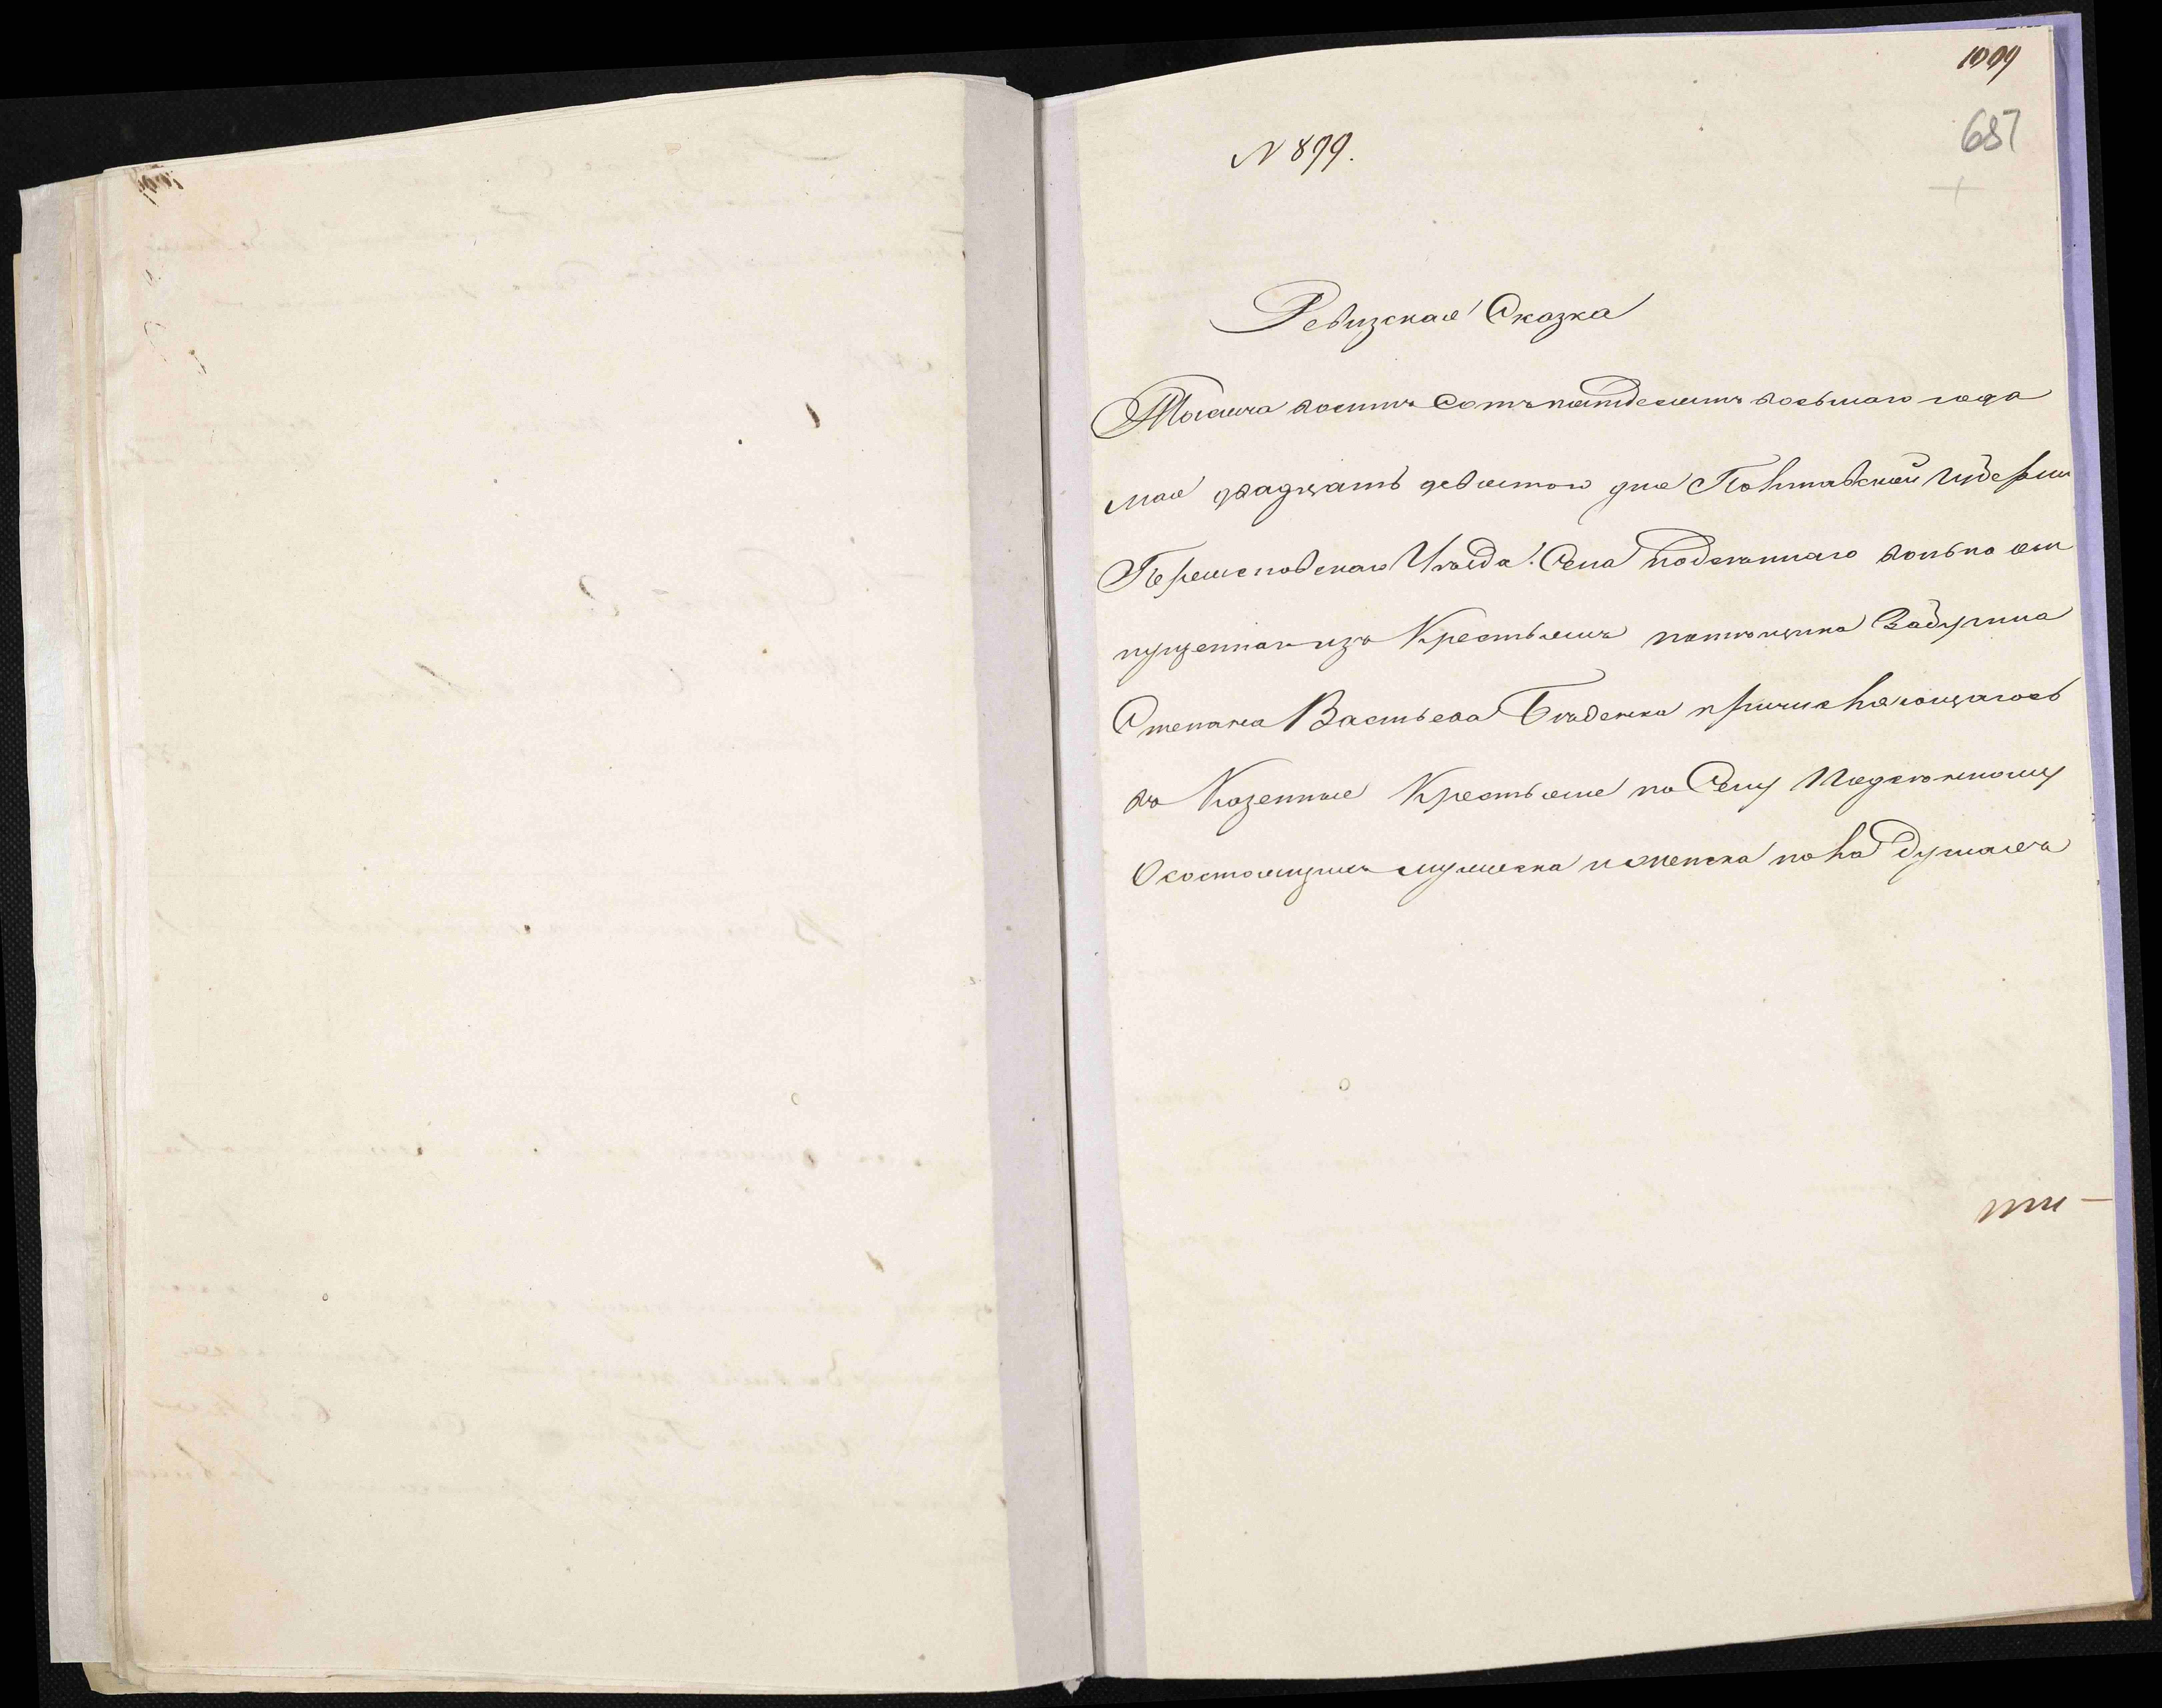 1099
687
N 899.
Ревизская Сказка
Тысяча восемь Сотъ пятдесятъ восьмаго года
мая двадцать девятого дня Полтавской губерніи
Переяславскаго Уѣзда Села Подсѣннаго вольно от
пущеннаго изъ Крестьянъ помѣщика
Степана Васильева причисляющагось
въ Казенные Крестьяне по Селу
О состоящихъ мужеска и женска пола душахъ